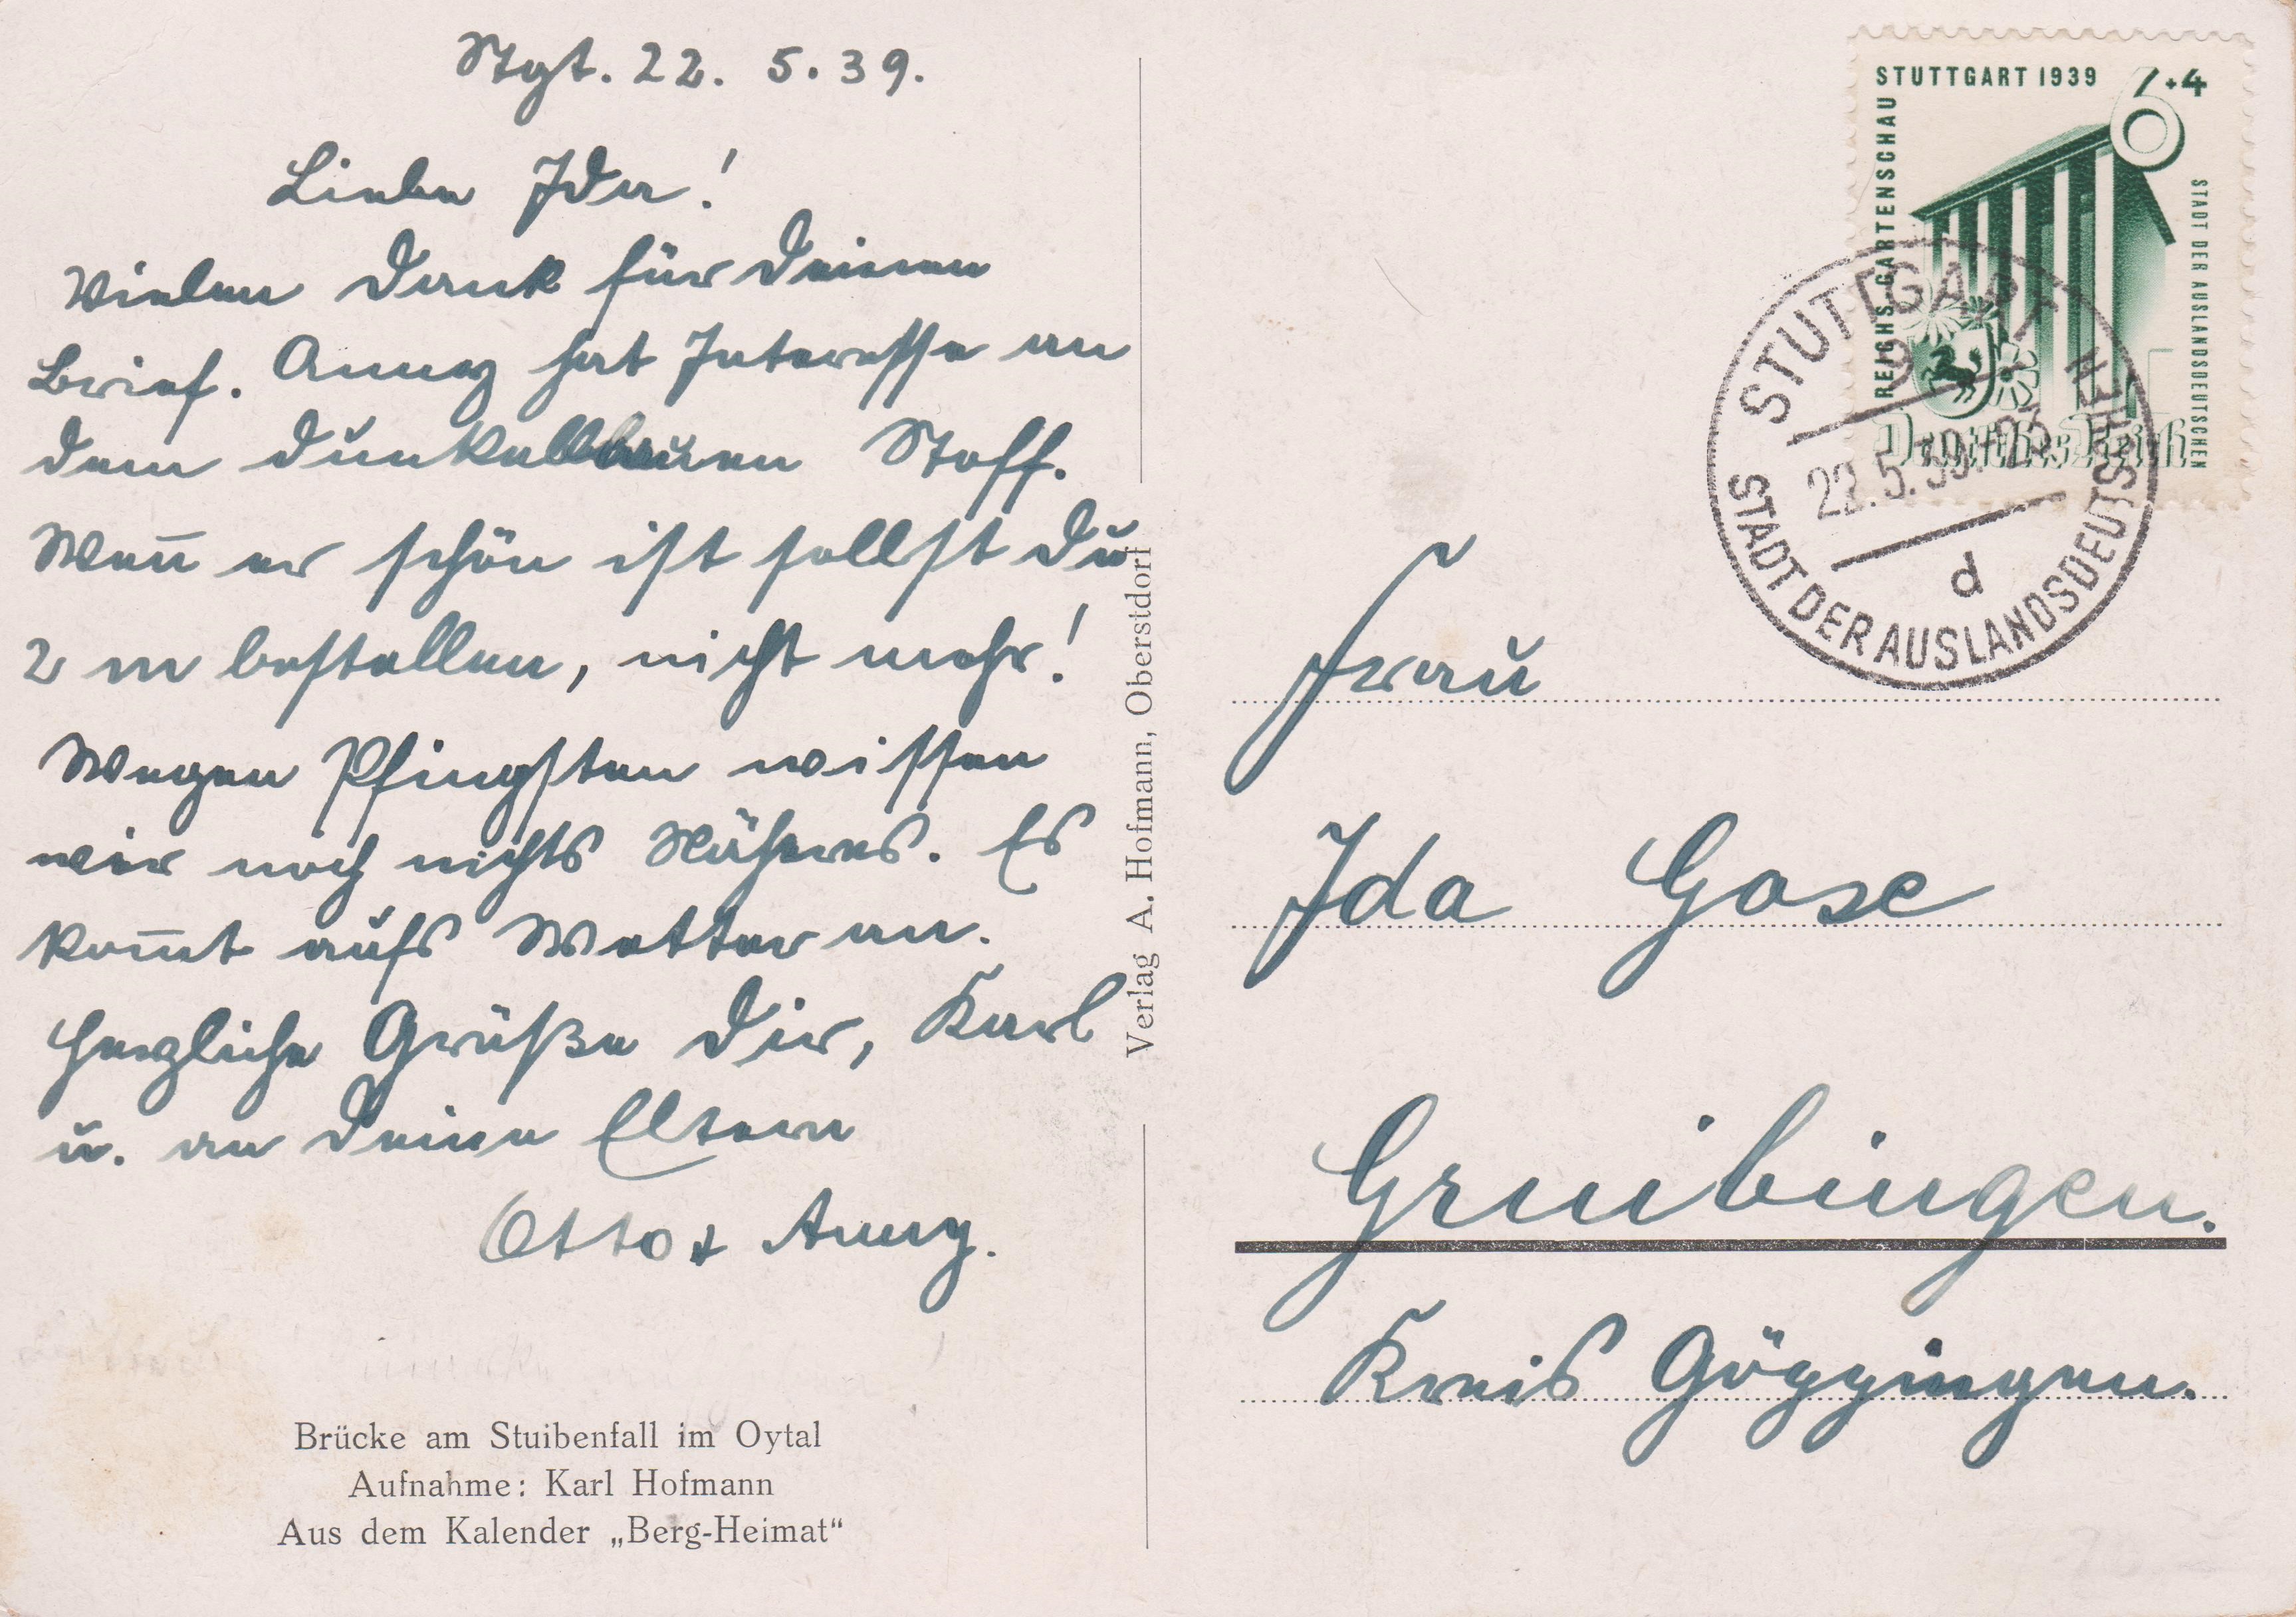 Stgt. 22. 5. 39.
Liebe Ida!
Vielen Dank für Deinen
Brief. Anny hat Interesse an
dem dunkelblauen Stoff.
Wen̄ er schön ist sollst Du
2 m bestellen, nicht mehr!
Wegen Pfingsten wissen
wir noch nichts Näheres. Es
kom̄t aufs Wetter an.
Herzliche Grüße Dir, Karl
u. an Deine Eltern
Otto + Anny.
Brücke am Stuibenfall im Oytal
Aufnahme: Karl Hofmann
Aus dem Kalender „Berg-Heimat“
Verlag A. Hofmann, Oberstdorf
REICHS-GARTENSCHAU
STUTTGART 1939
6+4
STADT DER AUSLANDSDEUTSCHEN
Deutsches Reich
STUTTGART
9
22.5.39.-23
d
STADT DER AUSLANDSDEUTSCHEN
Frau
Ida Gose
Gruibingen.
Kreis Göppingen.